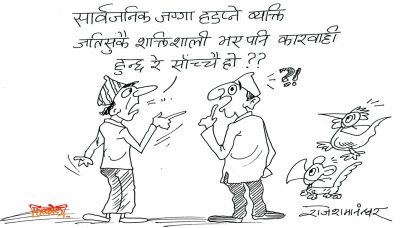 सार्वजनिक जग्गा हडप्ने व्यक्ति
जतिसुकै शक्तिशाली भए पनि कारवाही
हुन्छ रे साँच्चै हो ??
?!
राजशमानन्धर